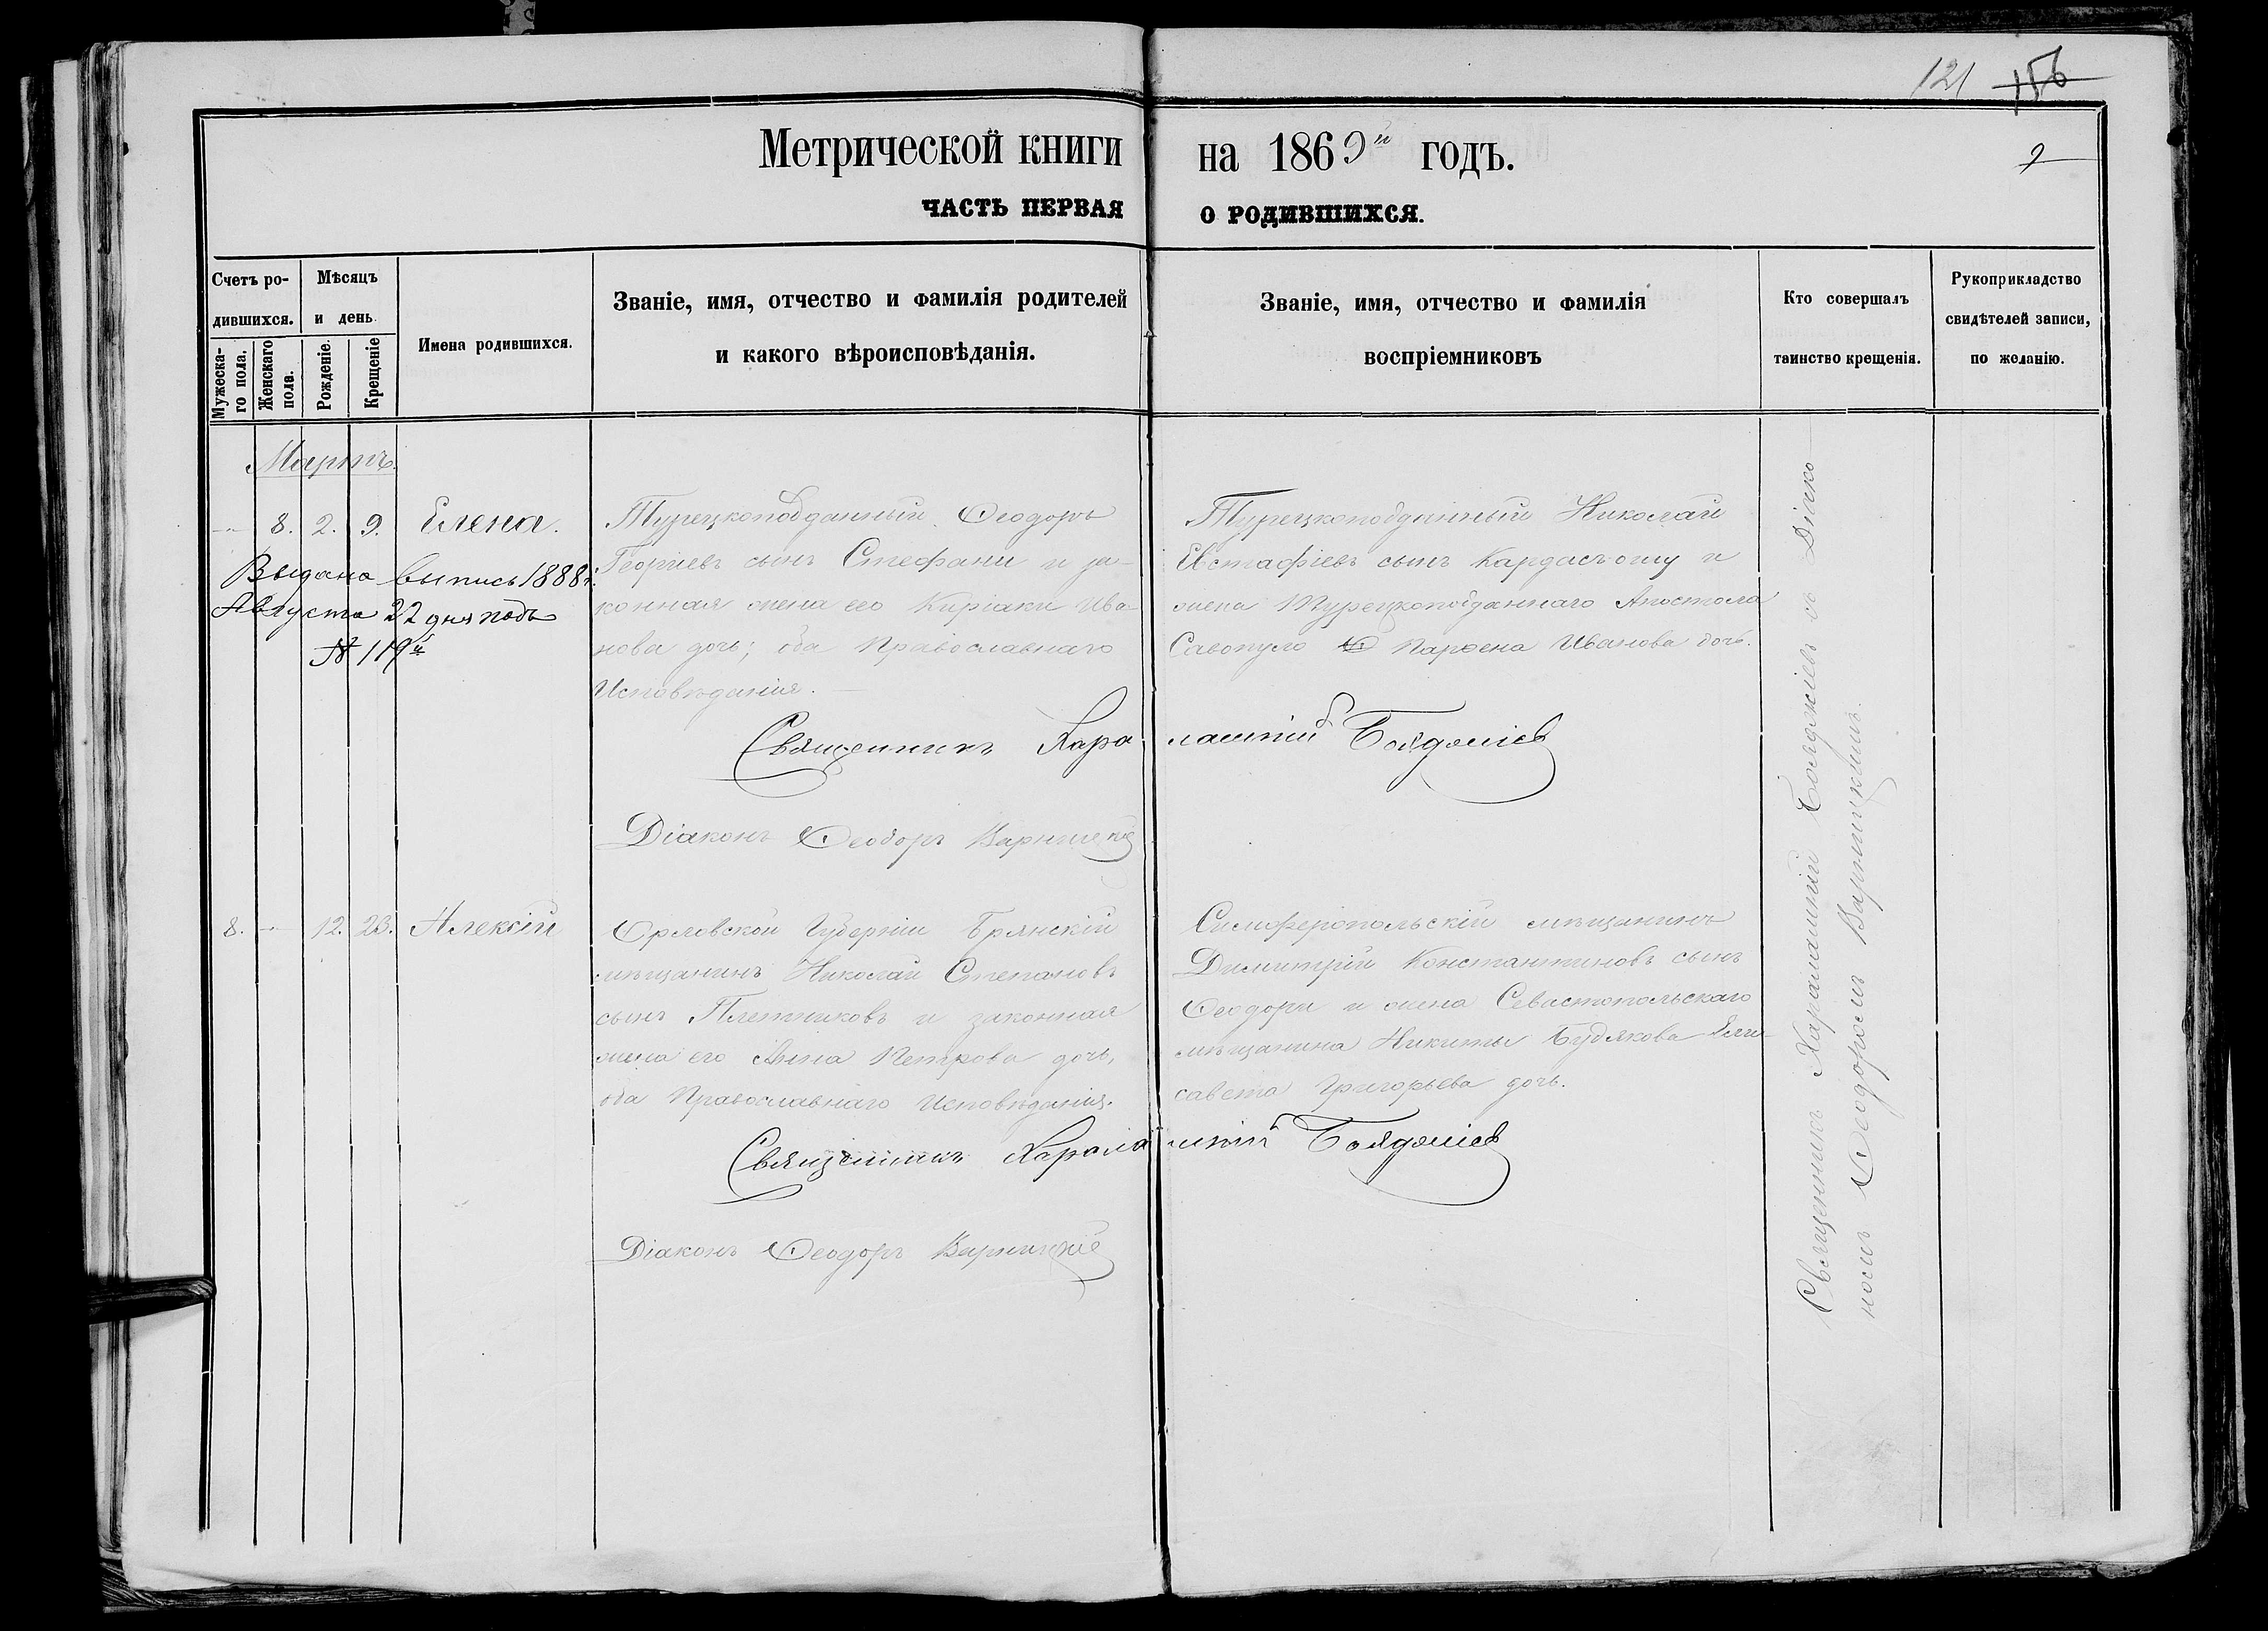 121 156
Метрической книги на 1869й годъ.
9
ЧАСТЬ ПЕРВАЯ О РОДИВШИХСЯ.
Счетъ ро-
дившихся.
Мужеска-
го пола.
Женскаго
пола.
Мѣсяцъ
и день
Рожденіе.
Крещеніе
Имена родившихся.
Званіе, имя, отчество и фамилія родителей
и какого вѣроисповѣданія.
Званіе, имя, отчество и фамилія
воспріемниковъ
Кто совершалъ
таинство крещенія.
Рукоприкладство
свидѣтелей записи,
по желанію.
Мартъ.
8. 2. 9. Елена.
Выдана выпись 1888 г.
Августа 22 дня подъ
№ 119й
Турецкоподданный Ѳеодоръ
Георгіевъ сынъ Стефани и за-
конная жена его Киріаки Ива-
нова дочь; оба Православнаго
Исповѣданія.
Турецкоподданный Николай
Евстафіевъ сынъ Кардасъ-оглу и
жена Турецкоподданнаго Апостола
Савопуло Парѳена Иванова дочь.
Священникъ Харалампій Бояджіевъ
Діаконъ Ѳеодоръ Варницкій
8. 12. 23. Алексій
Орловской Губерніи Брянскій
мѣщанинъ Николай Степановъ
сынъ Плетниковъ и законная
жена его Анна Петрова дочь,
оба Православнаго Исповѣданія.
Симферопольскій мѣщанинъ
Димитрій Константиновъ сынъ
Ѳеодори и жена Севастопольскаго
мѣщанина Никиты Будякова Ели-
савета Григорьева дочь.
Священникъ Харалампій Бояджіевъ
Діаконъ Ѳеодоръ Варницкій
Священникъ Харалампій Бояджіевъ съ Діако-
номъ Ѳеодоромъ Варницкимъ.